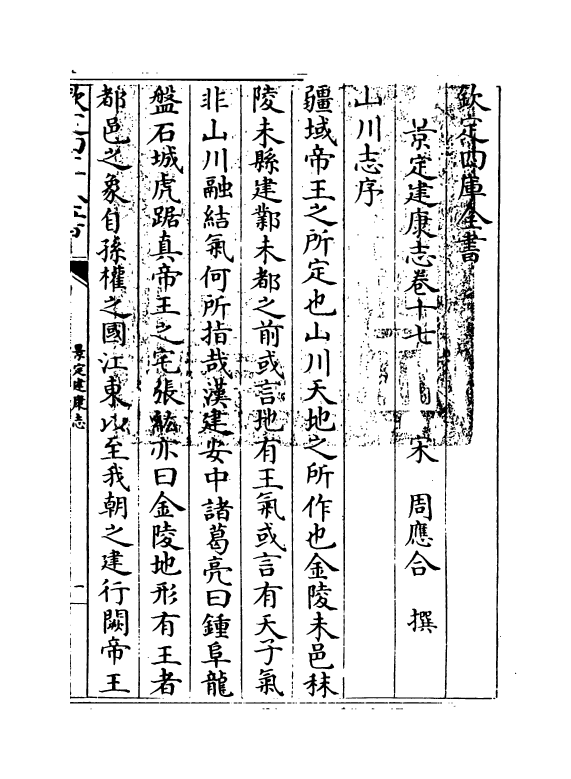 欽定四庫全書
景定建康志卷十七
宋 周應合 撰
山川志序
疆域帝王之所定也山川天地之所作也金陵未邑秣
陵未縣建鄴未都之前或言地有王氣或言有天子氣
非山川融結氣何所指哉漢建安中諸葛亮曰鍾阜龍
盤石城虎踞真帝王之宅張紘亦曰金陵地形有王者
都邑之象自孫權之國江東以至我朝之建行闕帝王
景定建康志
一